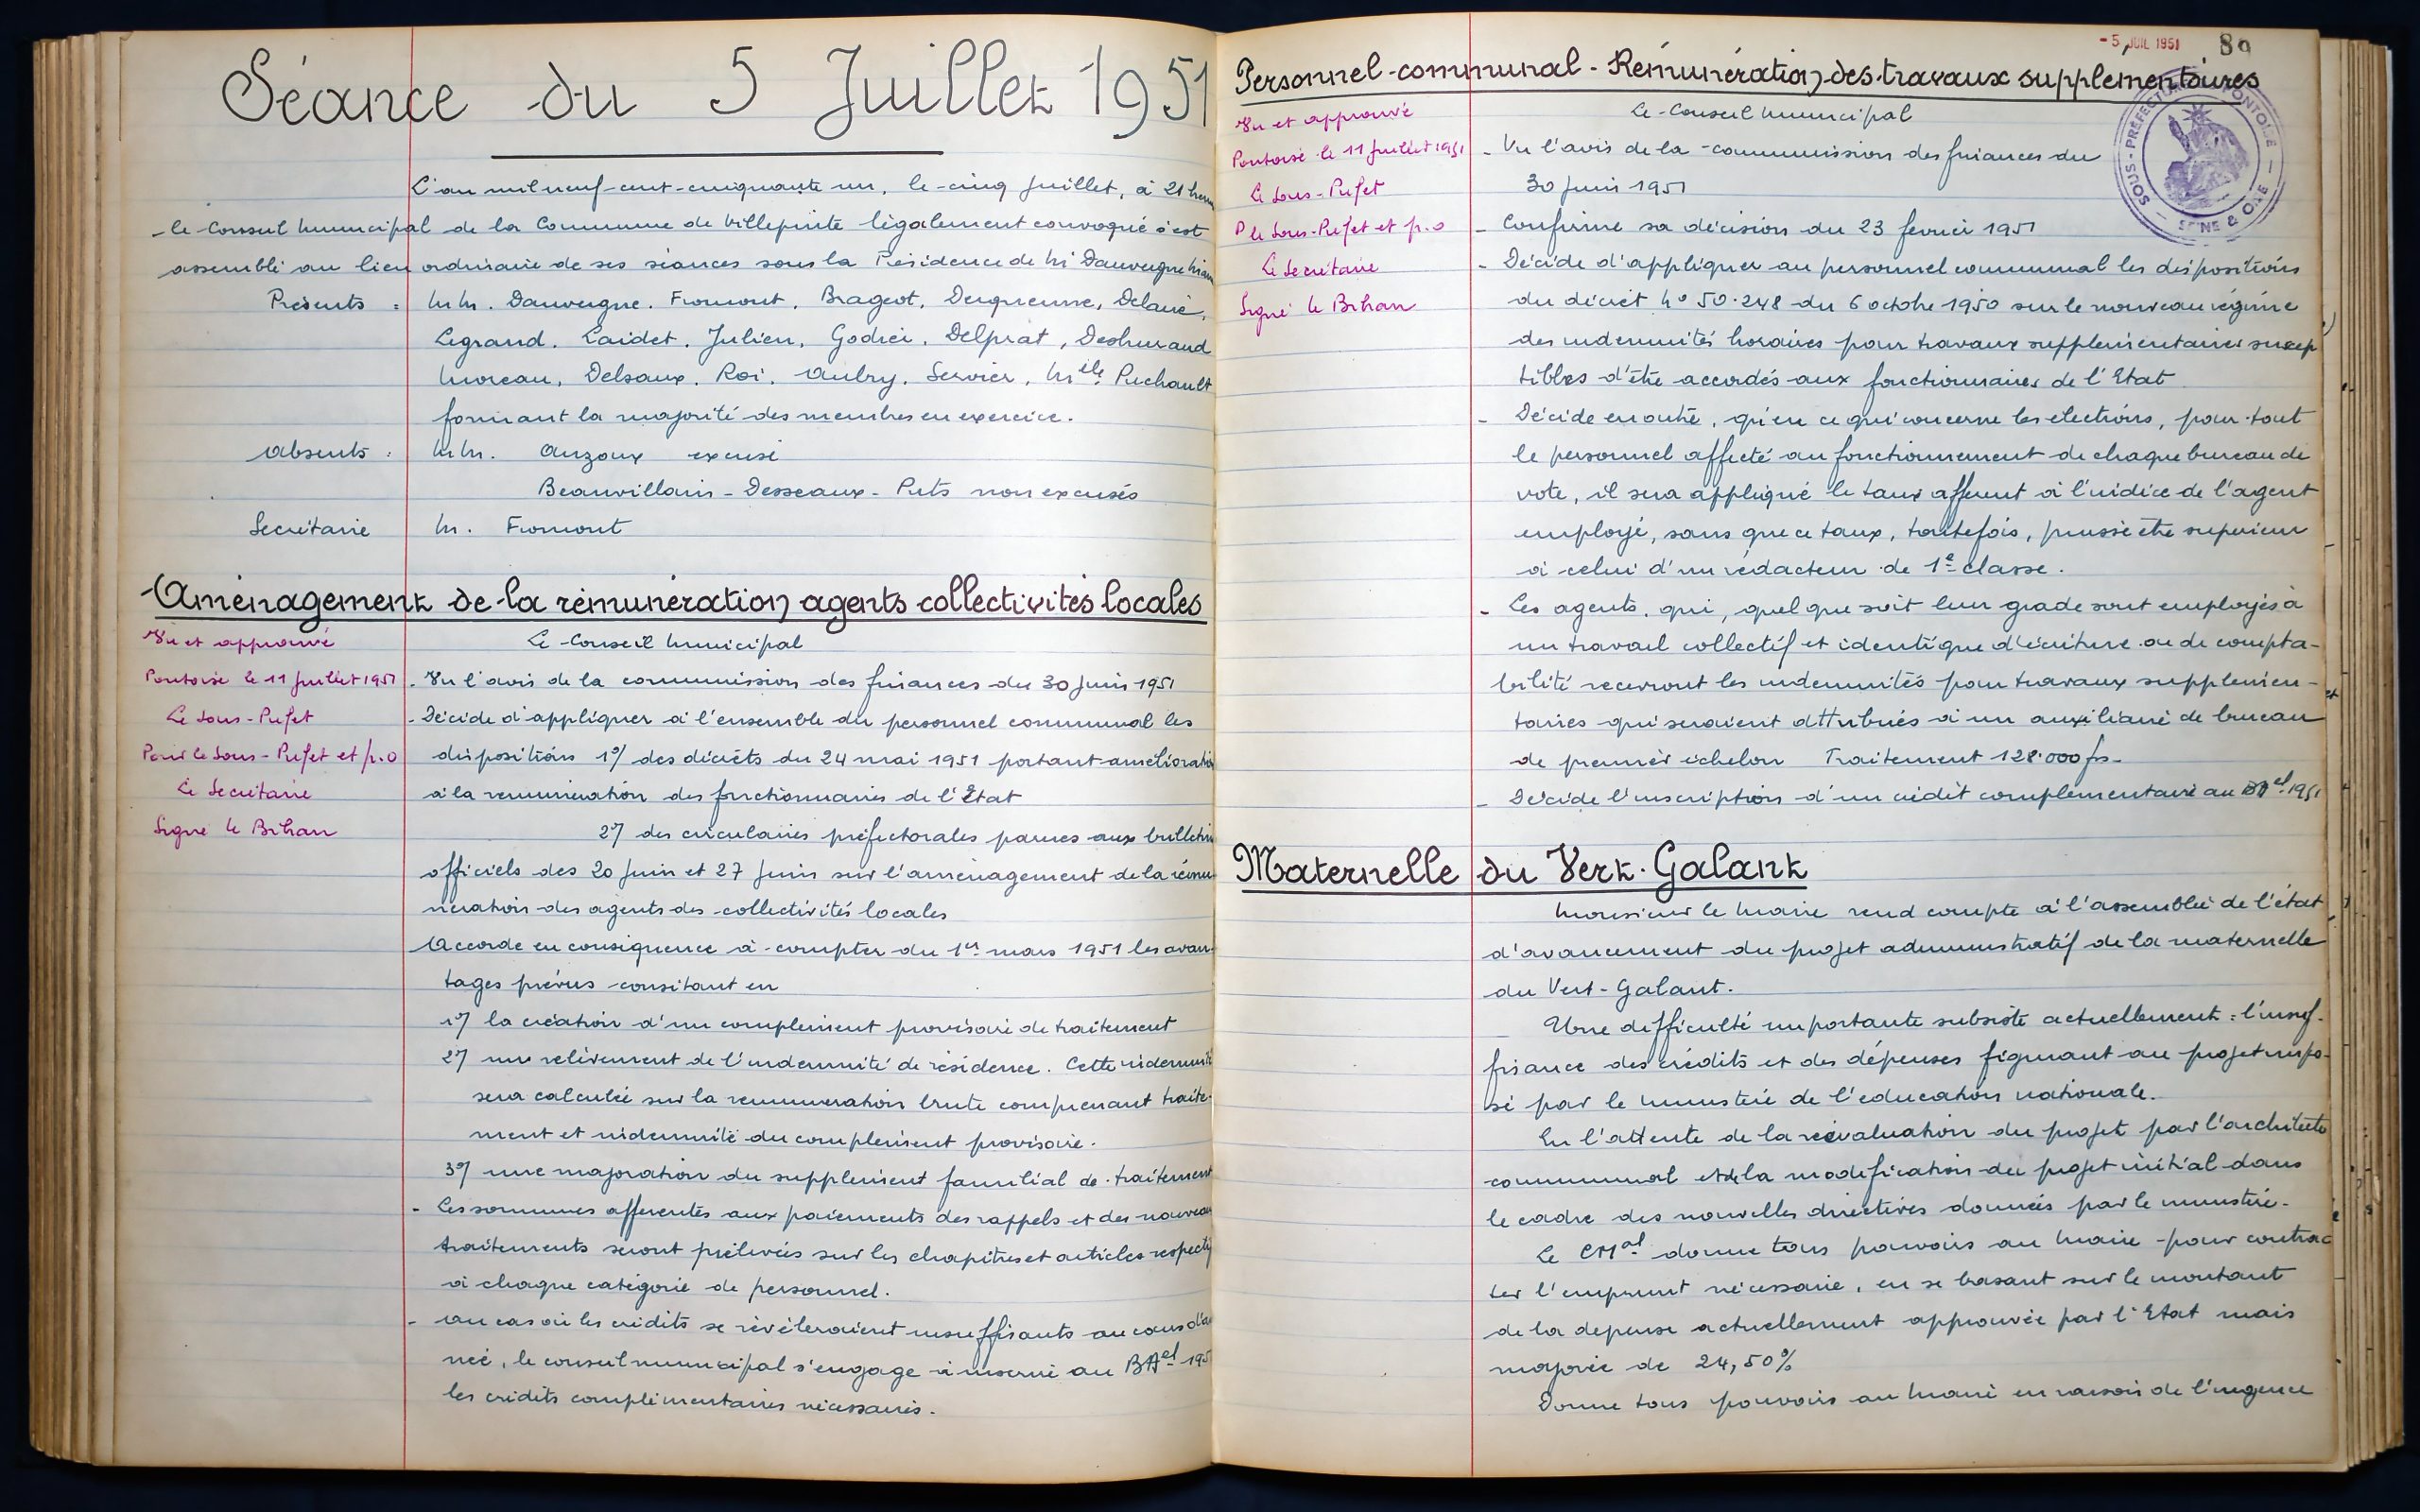 Séance du 5 Juillet 1951
L'an mil neuf-cent-cinquante un, le cinq Juillet, à 21 heu
le Conseil Municipal de la Commune de Villepinte légalement convoqué s'est
assemblé au lieu ordinaire de ses séances sous la Présidence de Mr Dauvergne Maire
Présents : MM. Dauvergne. Fromont, Brageot, Duquenne, Delarie,
Legrand. Laidet. Julien, Godier. Delprat, Deshurand
Moreau, Delsaux. Roi. Aubry. Servier, Melle Puchault
formant la majorité des membres en exercice.
Absents : MM. Auzoux excusé
Beauvillain - Desseaux - Puts non excusés
Secrétaire M. Fromont
Aménagement de la rémunération agents collectivités locales
Vu et approuvé
Pontoise le 11 Juillet 1951
Le Sous-Préfet
Pour le Sous-Préfet et p.o
Le Secrétaire
Signé le Bihan
Le Conseil Municipal
- Vu l'avis de la commission des finances du 30 Juin 1951
- Décide d'appliquer à l'ensemble du personnel communal les
dispositions 1°/ des décrets du 24 mai 1951 portant amélioration
à la rémunération des fonctionnaires de l'Etat
2°/ des circulaires préfectorales parues aux bulletin
officiels des 20 Juin et 27 Juin sur l'aménagement de la rému
nération des agents des collectivités locales
Accorde en conséquence à compter du 1er mars 1951 les avan-
tages prévus consitant en
1°/ la création d'un complément provisoire de traitement
2°/ une relèvement de l'indemnité de résidence. Cette indemnité
sera calculée sur la rémunération brute comprenant traite-
ment et indemnité du complément provisoire.
3°/ une majoration du supplément familial de traitement
- Les sommes afférentes aux paiements des rappels et des nouveau
traitements seront prélevées sur les chapitres et articles respectif
à chaque catégorie de personnel.
- au cas où les crédits se révèleraient insuffisants au cours d'an
née, le conseil municipal s'engage à inscrire au BAel 195
les crédits complémentaires nécessaires.
- 5 JUIL 1951 89
Personnel communal - Rémunération des travaux supplémentaires
SOUS-PRÉFECTURE PONTOISE
SEINE & OISE
Vu et approuvé
Pontoise le 11 Juillet 1951
Le Sous-Préfet
P le Sous-Préfet et p.o
Le Secrétaire
Signé le Bihan
Le Conseil Municipal
- Vu l'avis de la commission des finances du
30 Juin 1951
- Confirme sa décision du 23 février 1951
- Décide d'appliquer au personnel communal les dispositions
du décret N° 50.248 du 6 octobre 1950 sur le nouveau régime
des indemnités horaires pour travaux supplémentaires suscep
tibles d'être accordés aux fonctionnaires de l'Etat
- Décide en outre, qu'en ce qui concerne les élections, pour tout
le personnel affecté au fonctionnement de chaque bureau de
vote, il sera appliqué le taux afférent à l'indice de l'agent
employé, sans que ce taux, toutefois, puisse être supérieur
à celui d'un rédacteur de 1e classe.
- Les agents, qui, quel que soit leur grade sont employés à
un travail collectif et identique d'écriture ou de compta-
bilité recevront les indemnités pour travaux supplémen-
taires qui seraient attribués à un auxiliaire de bureau
de premier échelon Traitement 128.000 frs -
- Décide l'inscription d'un crédit complémentaire au BAel 1951
Maternelle du Vert-Galant
Monsieur le Maire rend compte à l'assemblée de l'état
d'avancement du projet administratif de la maternelle
du Vert-Galant.
Une difficulté importante subsiste actuellement : l'insuf-
fisance des crédits et des dépenses figurant au projet impo-
sé par le ministère de l'éducation nationale.
En l'attente de la réévaluation du projet par l'architecte
communal et de la modification du projet initial dans
le cadre des nouvelles directives données par le ministère.
Le CMal donne tous pouvoirs au Maire pour contrac
ter l'emprunt nécessaire, en se basant sur le montant
de la dépense actuellement approuvée par l'Etat mais
majorée de 24,50%
Donne tous pouvoirs au Maire en raison de l'urgence